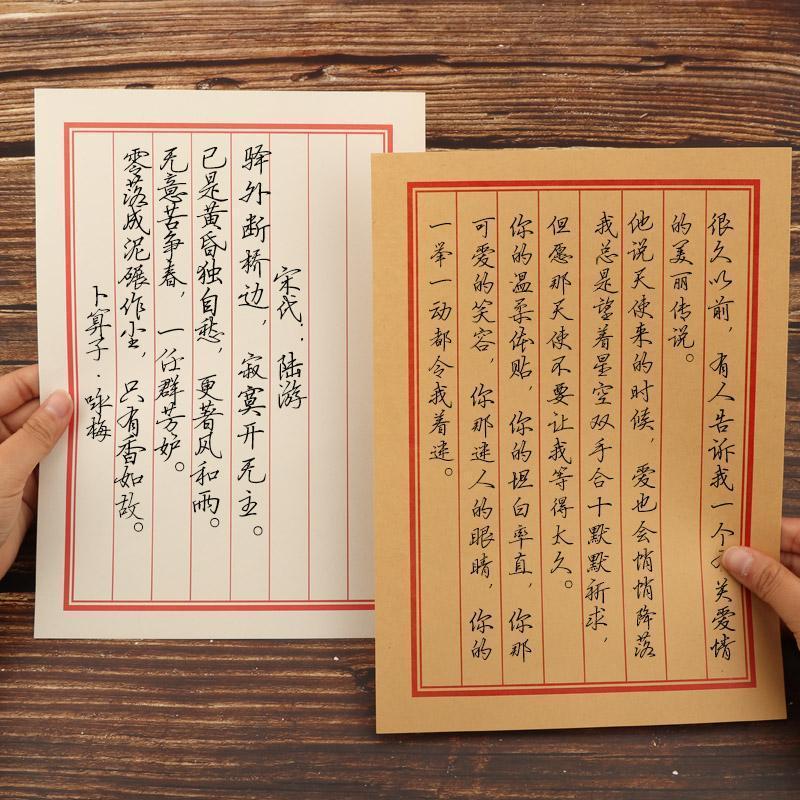 宋代·陆游
驿外断桥边，寂寞开无主。
已是黄昏独自愁，更著风和雨。
无意苦争春，一任群芳妒。
零落成泥碾作尘，只有香如故。
卜算子·咏梅
很久以前，有人告诉我一个关爱情
的美丽传说。
他说天使来的时候，爱也会悄悄降落
我总是望着星空双手合十默默祈求，
但愿那天使不要让我等得太久。
你的温柔体贴，你的坦白率直，你那
可爱的笑容，你那迷人的眼睛，你的
一举一动都令我着迷。